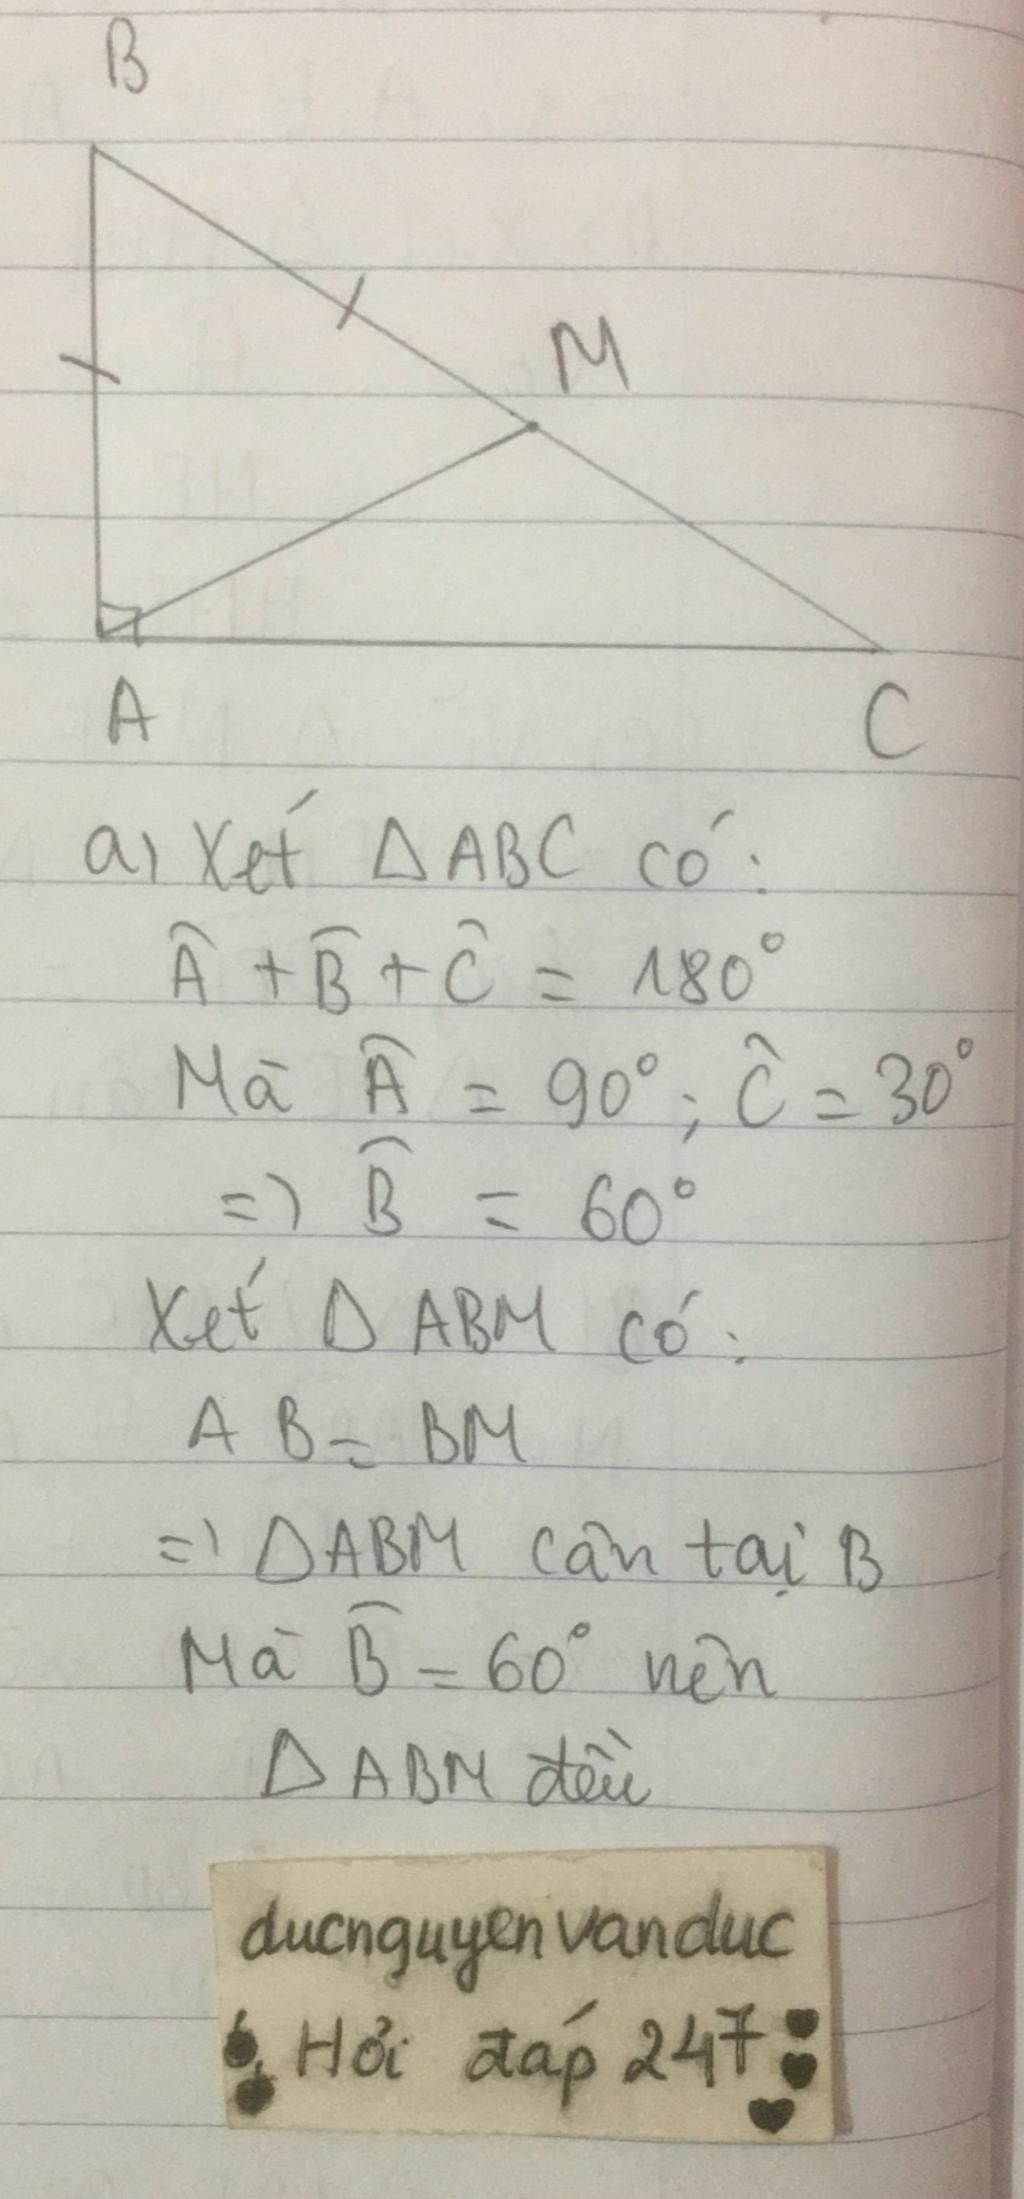 B
M
A
C
a) Xét ΔABC có:
Â + B̂ + Ĉ = 180°
Mà Â = 90°; Ĉ = 30°
=) B̂ = 60°
Xét Δ ABM có:
AB = BM
=) ΔABM cân tại B
Mà B̂ = 60° nên
Δ ABM đều
ducnguyenvanduc
Hỏi đáp 247